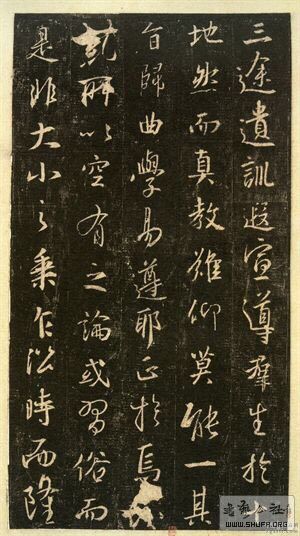 三途遺訓遐宣導群生於
地然而真教難仰莫能一其
旨歸曲學易遵耶正於焉
糺所以空有之論或習俗而
是非大小之乘乍沿時而隆
WWW.SHUFA.ORG